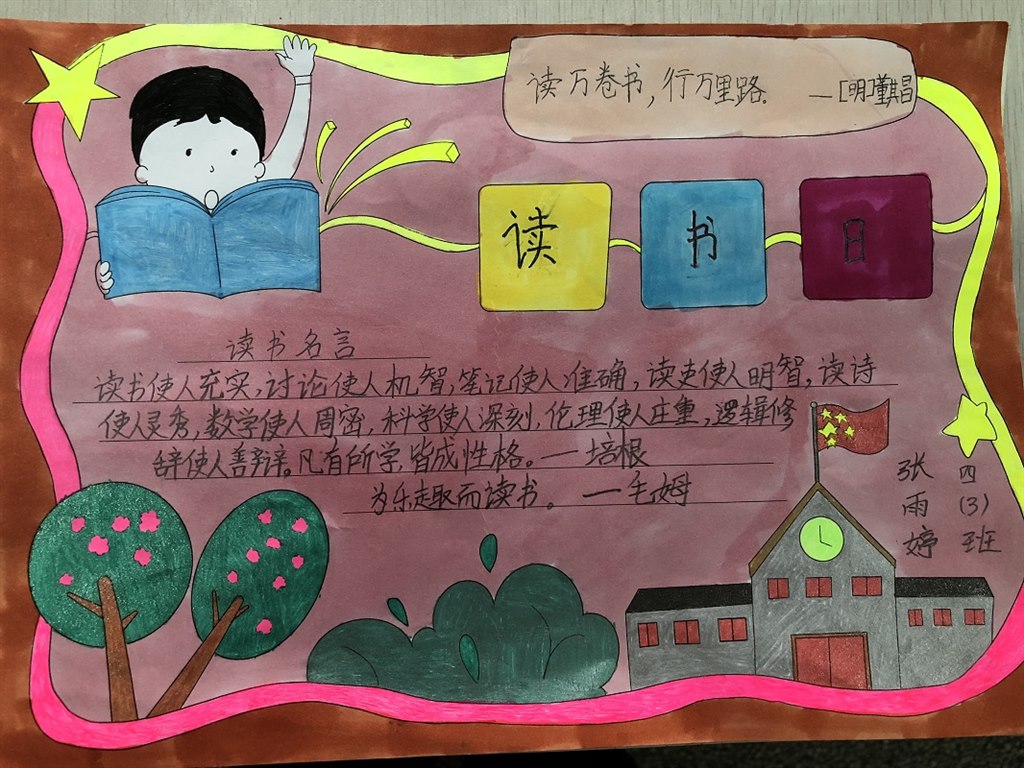 读万卷书，行万里路. —[明]董其昌
读书日
读书名言
读书使人充实，讨论使人机智，笔记使人准确，读史使人明智，读诗
使人灵秀，数学使人周密，科学使人深刻，伦理使人庄重，逻辑修
辞使人善辩。凡有所学皆成性格。—培根
为乐趣而读书。—毛姆
张雨婷
四(3)班